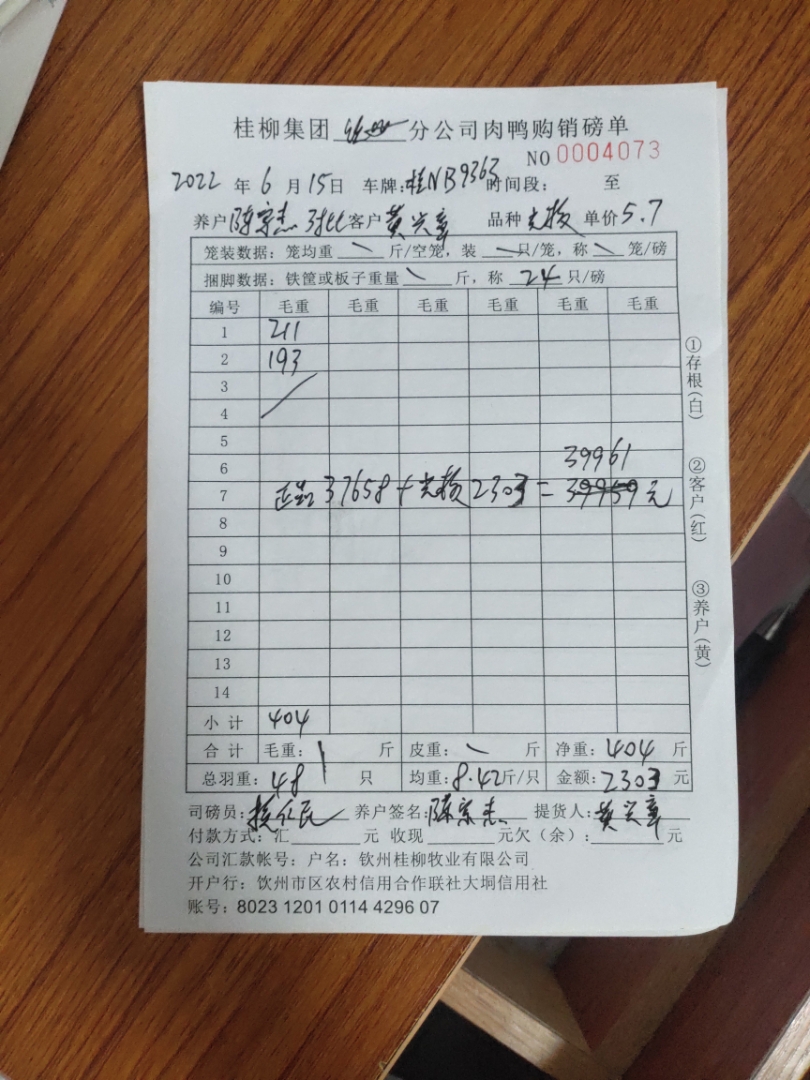 桂柳集团 钦州 分公司肉鸭购销磅单
NO 0004073
2022 年 6 月 15日 车牌:桂NB9363 时间段: 至
养户 陈宗杰 客户 黄兴章 品种 单价 5.7
笼装数据: 笼均重 \ 斤/空笼, 装 \ 只/笼, 称 \ 笼/磅
捆脚数据: 铁筐或板子重量 \ 斤, 称 24 只/磅
编号 毛重 毛重 毛重 毛重 毛重 毛重
1 211
2 193
3
4
5
6 39961
7 正品 37658 + 2303 = 39959 元
8
9
10
11
12
13
14
小计 404
合计 毛重: \ 斤 皮重: \ 斤 净重: 404 斤
总羽重: 48 只 均重: 8.42 斤/只 金额: 2303 元
司磅员: 养户签名: 陈宗杰 提货人: 黄兴章
付款方式: 汇 元 收现 元欠(余): 元
公司汇款帐号: 户名: 钦州桂柳牧业有限公司
开户行: 钦州市区农村信用合作联社大垌信用社
账号: 8023 1201 0114 4296 07
①存根(白)
②客户(红)
③养户(黄)